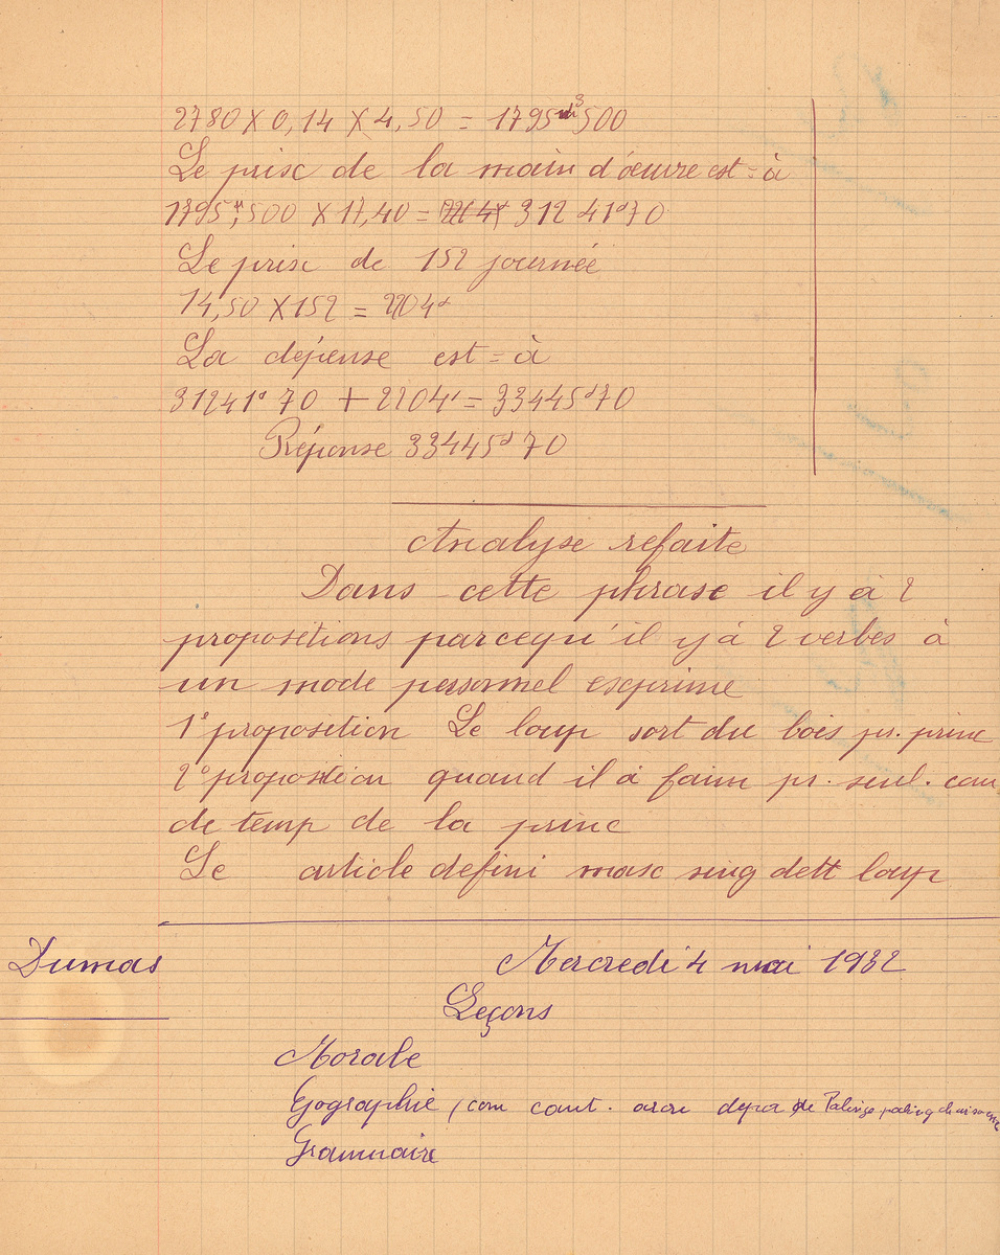 2780 X 0,14 X 4,50 = 1795m3 500
Le prix de la main d'œuvre est = à
1795m3,500 X 17,40 = 31241f70
Le prix de 152 journée
14,50 X 152 = 2204f
La dépense est = à
31241f 70 + 2204f = 33445f70
Réponse 33445f 70
Analyse refaite
Dans cette phrase il y à 2
propositions parcequ'il y à 2 verbes à
un mode personnel exprime
1e proposition Le loup sort du bois pr. princ
2e propostion quand il à faim pr. sub. com
de temp de la princ
Le article defini masc sing dett loup
Dumas
Mercredi 4 mai 1932
Leçons
Morale
Gographie, com cant.
Grammaire